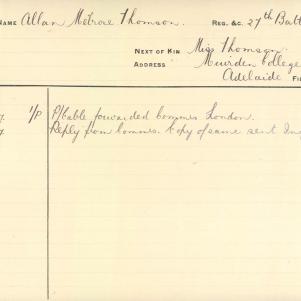 NAME Allan Melrose Thomson. REG. &C. 27th Batt
NEXT OF KIN Miss Thomson
ADDRESS Muirden College
Adelaide
1/P P/Cable forwarded Commrs London.
Reply from Commrs. Copy of same sent